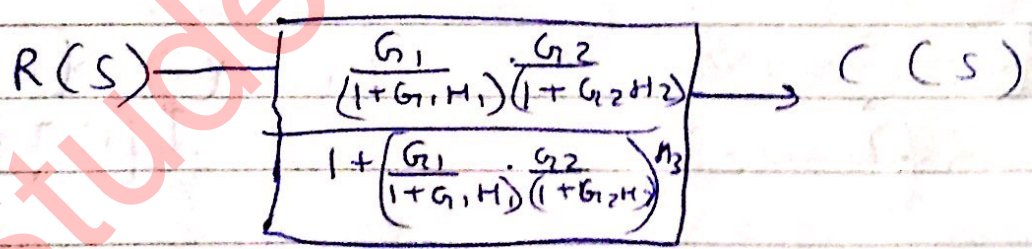 R(S) G1/(1+G1H1) · G2/(1+G2H2) C(S)
1+(G1/(1+G1H1) · G2/(1+G2H))H3
tude